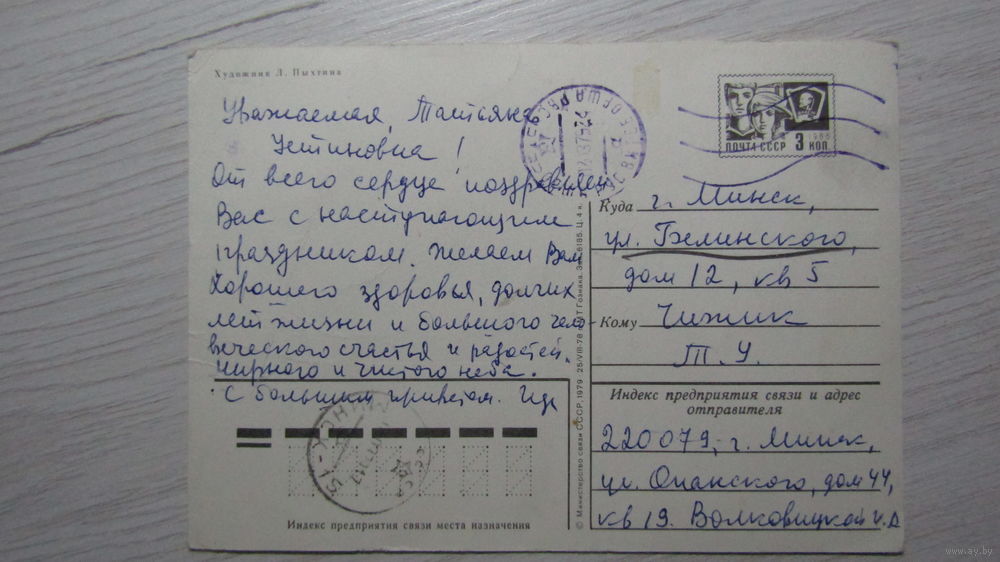 Художник Л. Пыхтина
Уважаемая Татсяна
Устиновна!
От всего сердца поздравляем
Вас с наступающим
праздником. Желаем Вам
хорошего здоровья, долгих
лет жизни и большого чело-
веческого счастья и радостей,
мирного и чистого неба.
С большим приветом.
Индекс предприятия связи места назначения
© Министерство связи СССР. 1979
ПОЧТА СССР 3 КОП
Куда г. Минск,
ул. Белинского,
дом 12, кв 5
Кому Чижик
Т. У.
Индекс предприятия связи и адрес
отправителя
220079, г. Минск,
ул. Опанского, дом 44,
кв 19. Волковицкой
www.ay.by